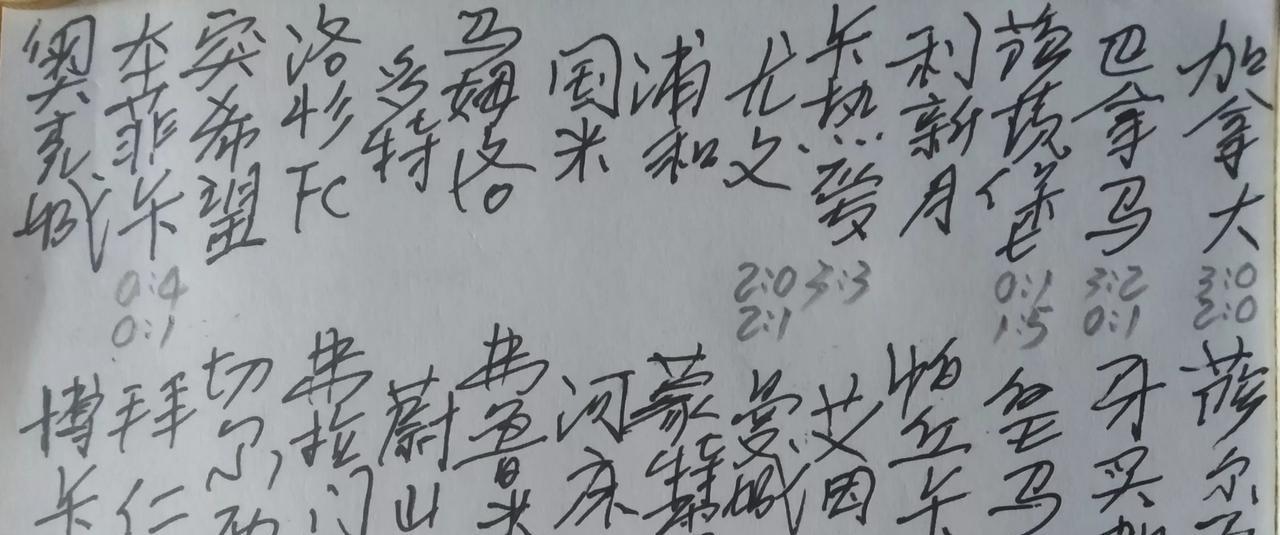 奥克城
本菲卡
突希望
洛杉FC
多特
马姆洛
国米
浦和
尤文
卡热爱
利新月
萨茨堡
巴拿马
加拿大
0:4
0:1
2:0
2:1
3:3
0:1
1:5
3:2
0:1
3:0
2:0
博卡
拜仁
切尔
弗拉门
蔚山
弗鲁米
河床
蒙特
曼城
艾因
帕丘卡
皇马
牙买
萨尔